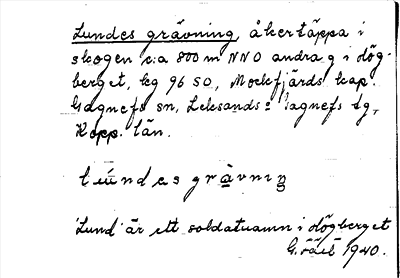 Lundes grävning, åkertäppa i
skogen c:a 800 m NNO andra g i dög-
berget, kg 96 SO, Mockfjärds kap.
Gagnefs sn, Leksands o Gagnefs tg,
Kopp. län.
grävning
'Lund' är ett soldatnamn i dögberget
1940.